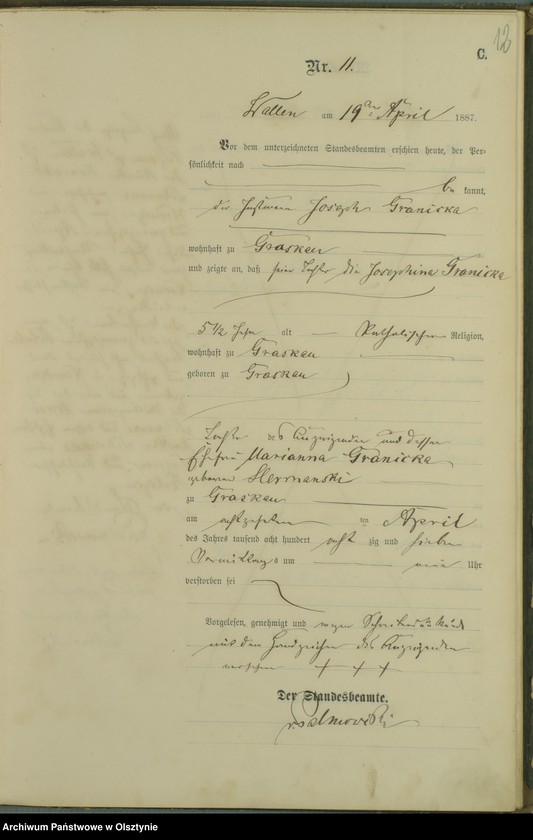 C.
Nr. 11.
Wallen am 19ten April 1887.
Vor dem unterzeichneten Standesbeamten erschien heute, der Per-
sönlichkeit nach
be kannt,
der Instmann Joseph Granicka
wohnhaft zu Graskau
und zeigte an, daß seine Tochter die Josephina Granicka
5 1/2 Jahr alt Katholischer Religion,
wohnhaft zu Graskau
geboren zu Graskau
Tochter des Anzeigenden und dessen
Ehefrau Marianna Granicka
geborene Hermanski
zu Graskau
am achtzehnten ten April
des Jahres tausend acht hundert acht zig und sieben
Vormittags um neun Uhr
verstorben sei
Vorgelesen, genehmigt und wegen Schreibensunkunde
mit dem Handzeichen des Anzeigenden
versehen + + +
Der Standesbeamte.
Archiwum Państwowe w Olsztynie